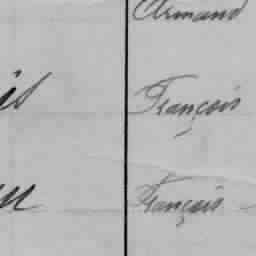 Armand
François
François